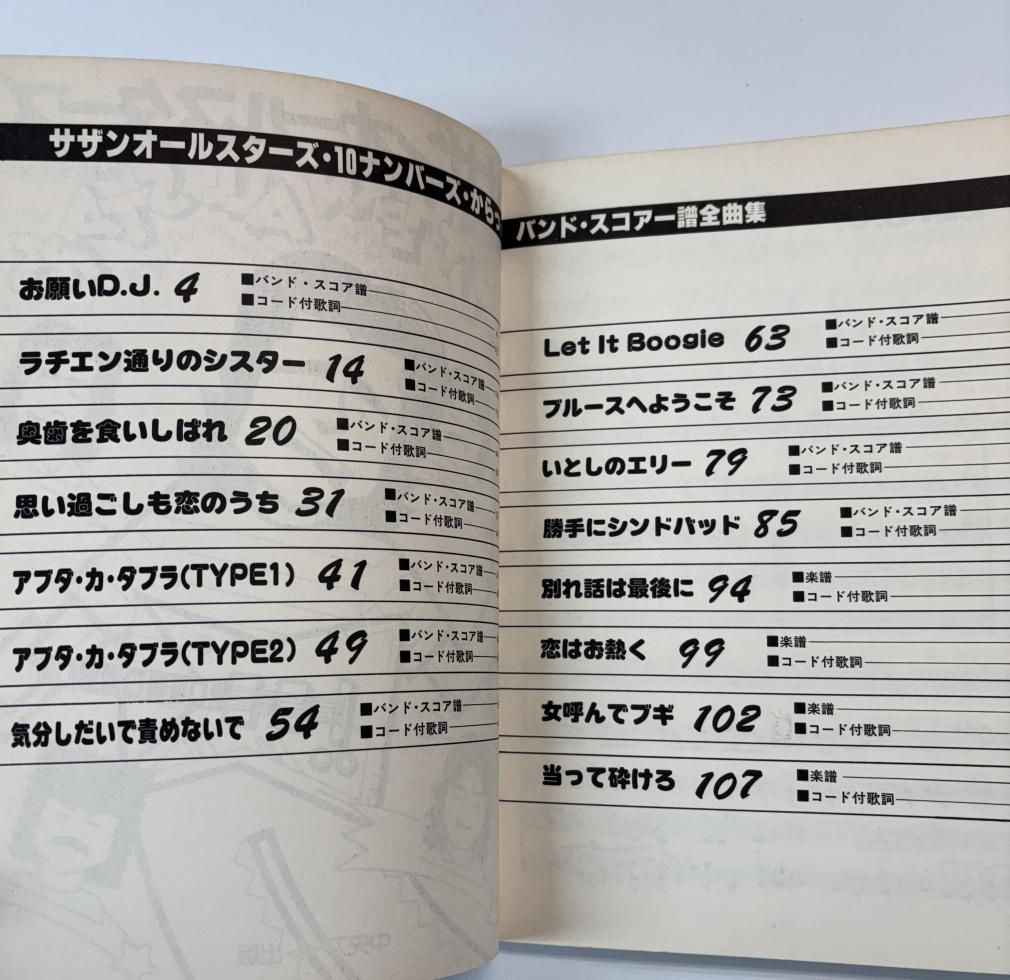 サザンオールスターズ・10ナンバーズ・からっ
お願いD.J. 4 ■バンド・スコア譜
■コード付歌詞
ラチエン通りのシスター 14 ■バンド・スコア譜
■コード付歌詞
奥歯を食いしばれ 20 ■バンド・スコア譜
■コード付歌詞
思い過ごしも恋のうち 31 ■バンド・スコア譜
■コード付歌詞
アブタ・カ・タブラ(TYPE1) 41 ■バンド・スコア譜
■コード付歌詞
アブタ・カ・タブラ(TYPE2) 49 ■バンド・スコア譜
■コード付歌詞
気分しだいで責めないで 54 ■バンド・スコア譜
■コード付歌詞
バンド・スコアー譜全曲集
Let It Boogie 63 ■バンド・スコア譜
■コード付歌詞
ブルースへようこそ 73 ■バンド・スコア譜
■コード付歌詞
いとしのエリー 79 ■バンド・スコア譜
■コード付歌詞
勝手にシンドバッド 85 ■バンド・スコア譜
■コード付歌詞
別れ話は最後に 94 ■楽譜
■コード付歌詞
恋はお熱く 99 ■楽譜
■コード付歌詞
女呼んでブギ 102 ■楽譜
■コード付歌詞
当って砕けろ 107 ■楽譜
■コード付歌詞